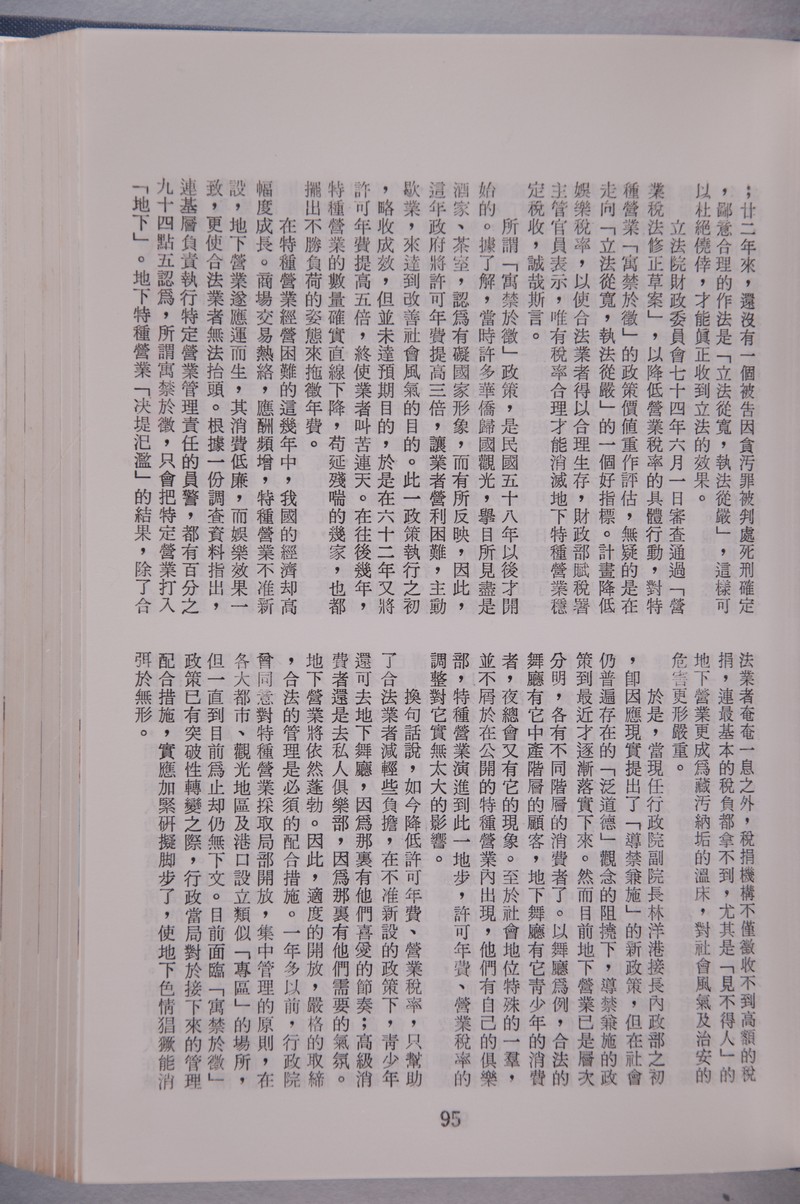 ；廿二年來，還沒有一個被告因貪污罪被判處死刑確定
，鄙意合理的作法是「立法從寬，執法從嚴」，這樣可
以杜絕僥倖，才能眞正收到立法的效果。
立法院財政委員會七十四年六月一日審查通過「營
業稅法修正草案」，以降低營業稅率的具體行動，對特
種營業「寓禁於徵」的政策價值重作評估，無疑的是在
走向「立法從寬，執法從嚴」的一個好指標。計畫降低
娛樂稅率，以使合法業者得以合理生存，財政部賦稅署
主管官員表示，唯有稅率合理才能消滅地下特種營業穩
定稅收，誠哉斯言。
所謂「寓禁於徵」政策，是民國五十八年以後才開
始的。據了解，當時許多華僑歸國觀光，舉目所見盡是
酒家、茶室，認爲有礙國家形象，而有所反映，因此，
這年政府將許可年費提高三倍，讓業者營利困難，主動
歇業，來達到改善社會風氣的目的。此一政策執行之初
，略收成效，但並未達預期目的，於是在六十二年又將
許可年費提高五倍，終使業者叫苦連天。在往後幾年，
特種營業的數量確實直線下降，苟延殘喘的幾家，也都
擺出不勝負荷的姿態來拖徵年費。
在特種營業經營困難的這幾年中，我國的經濟却高
幅度成長。商場交易熱絡，應酬頻增，特種營業不准新
設，地下營業遂應運而生，其消費低廉，而娛樂效果一
致，更使合法業者無法抬頭。根據一份調查資料指出，
連基層負責執行特定營業管理責任的員警，都有百分之
九十四點五認爲，所謂寓禁於徵，只會把特定營業打入
「地下」。地下特種營業「決堤氾濫」的結果，除了合
法業者奄奄一息之外，稅捐機構不僅徵收不到高額的稅
捐，連最基本的稅負都拿不到，尤其是「見不得人」的
地下營業更成爲藏汚納垢的溫床，對社會風氣及治安的
危害更形嚴重。
於是，當現任行政院副院長林洋港接長內政部之初
，卽因應現實提出了「導禁兼施」的新政策，但在社會
仍普遍存在的「泛道德」觀念的阻撓下，導禁兼施的政
策到最近才逐漸落實下來。然而目前地下營業已是層次
分明，各有不同階層的消費者了。以舞廳爲例，合法的
舞廳有它中產階層的顧客，地下舞廳有它青少年的消費
者，夜總會又有它的現象。至於社會地位特殊的一羣，
並不屑於在公開的特種營業內出現，他們有自己的俱樂
部，特種營業演進到此一地步，許可年費、營業稅率的
調整對它實無太大的影響。
換句話說，如今降低許可年費、營業稅率，只幫助
了合法業者減輕些負擔，在不准新設的政策下，靑少年
還可去地下舞廳，因爲那裏有他們喜愛的節奏；高級消
費者還是去私人俱樂部，因爲那裏有他們需要的氣氛。
地下營業將依然蓬勃。因此，適度的開放，嚴格的取締
，合法的管理是必須的配合措施。一年多以前，行政院
曾同意對特種營業採取局部開放，集中管理的原則，在
各大都市、觀光地區及港口設立類似「專區」的場所，
但一直到目前爲止却仍無下文。目前面臨「寓禁於徵」
政策已有突破性轉變之際，行政當局對於接下來的管理
配合措施，實應加緊硏擬脚步了，使地下色情猖獗能消
弭於無形。
95